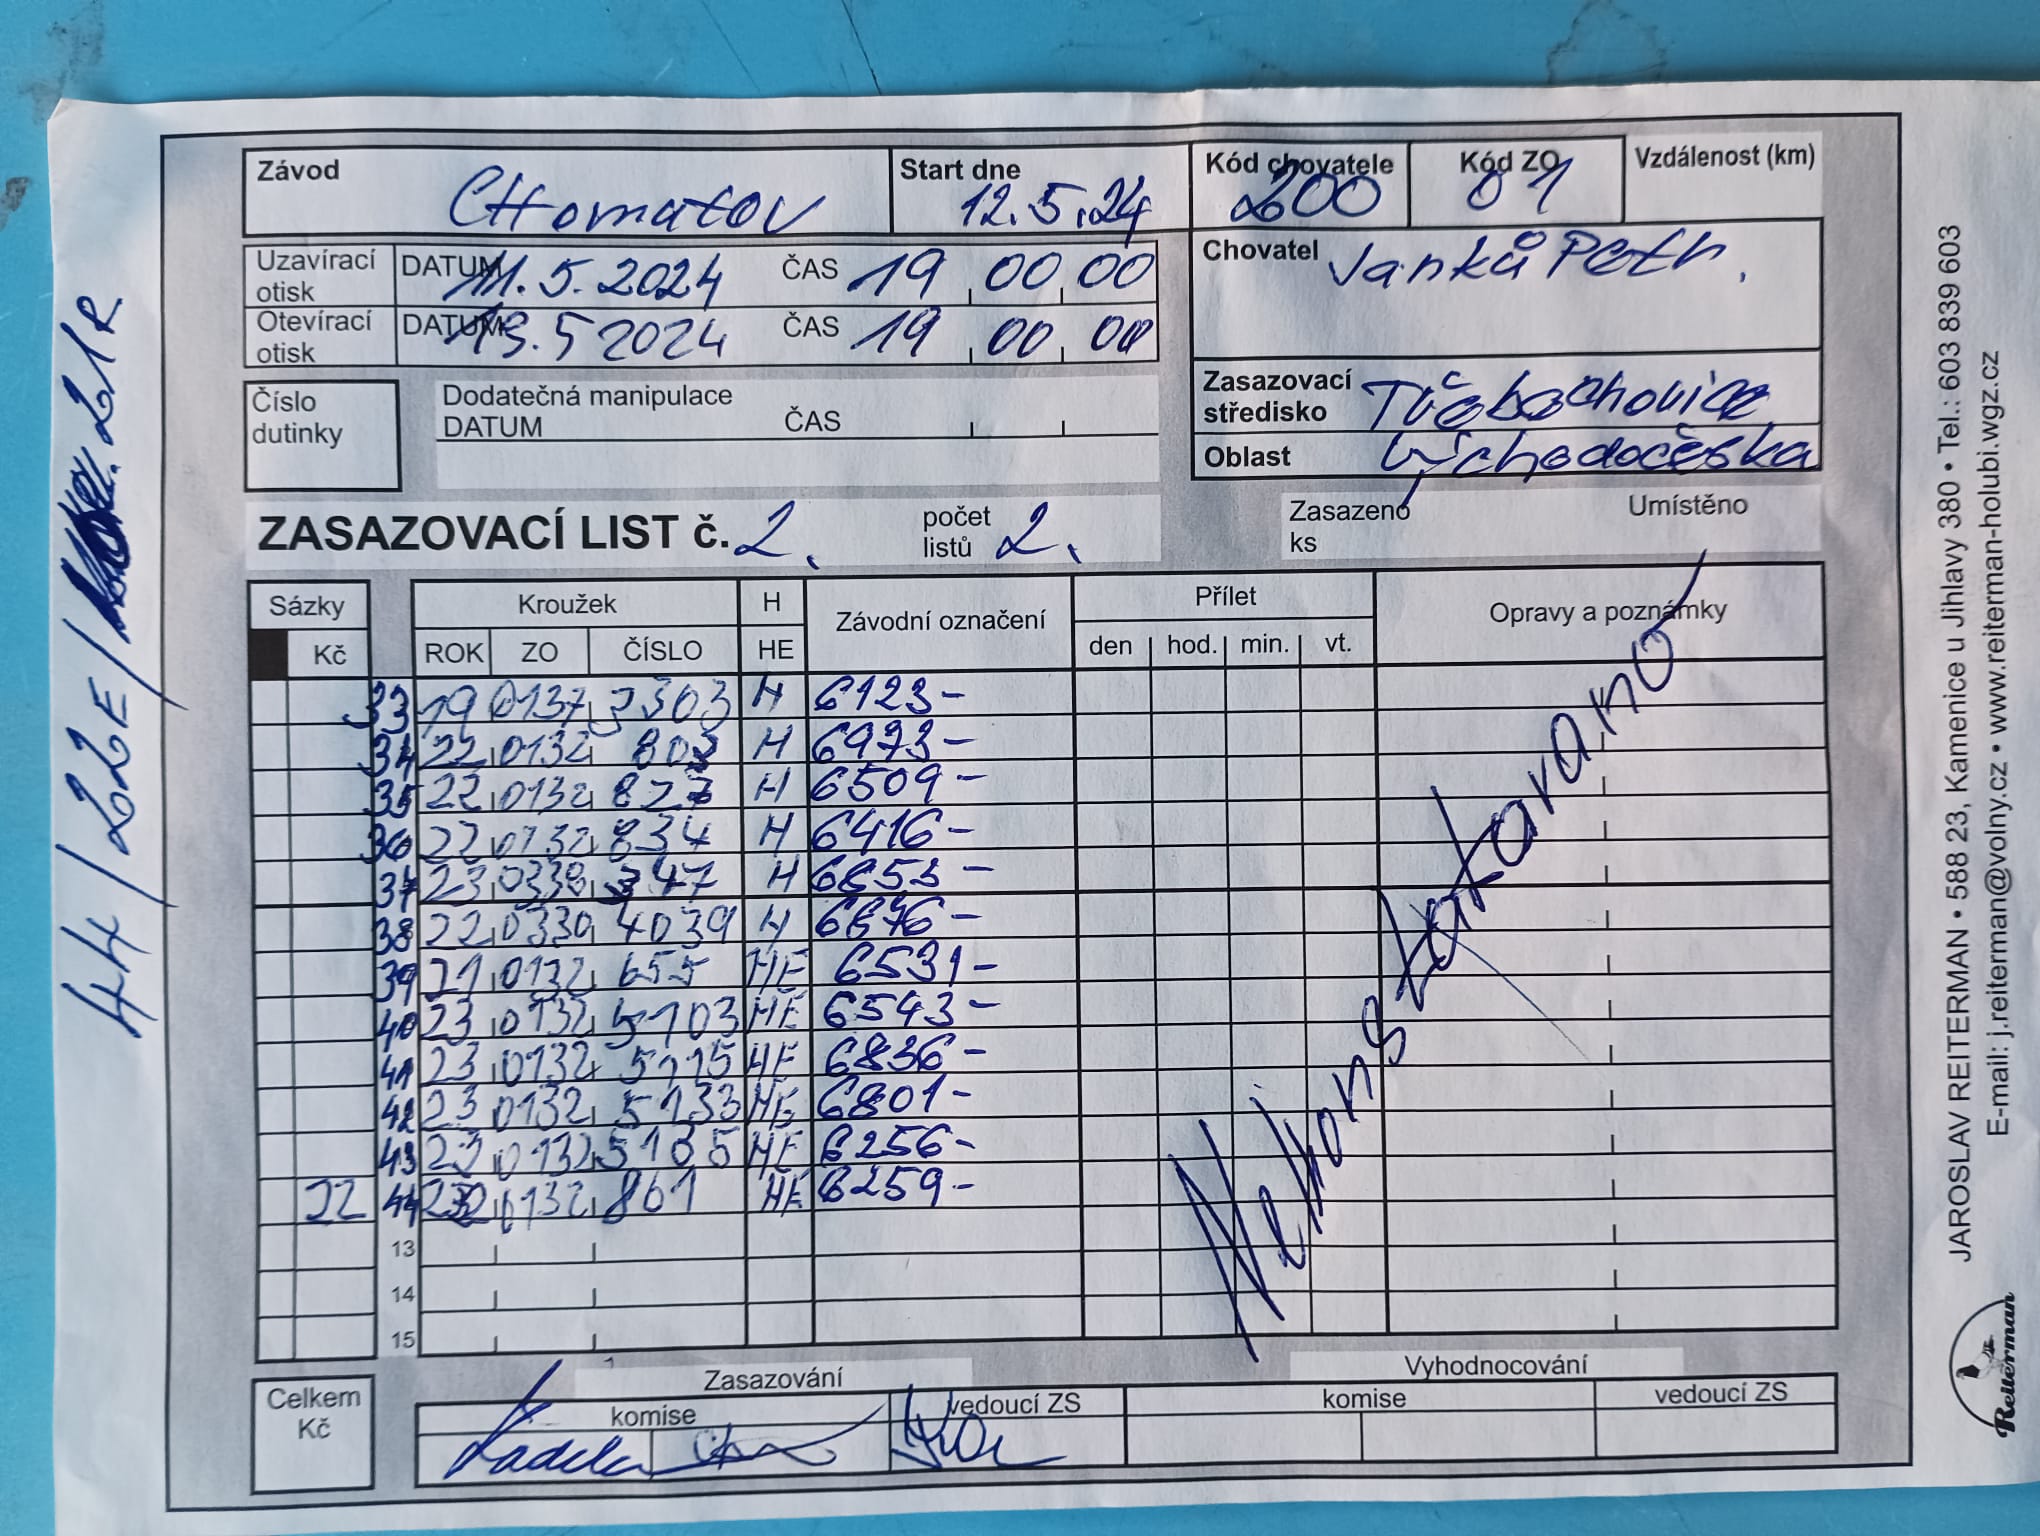 Závod CHomutov Start dne 12.5.24 Kód chovatele 200 Kód ZO 01 Vzdálenost (km)
Uzavírací otisk DATUM 11.5.2024 ČAS 19 00 00
Otevírací otisk DATUM 13.5 2024 ČAS 19 00 00
Chovatel Janků Petr.
Číslo dutinky
Dodatečná manipulace
DATUM ČAS
Zasazovací středisko Třebechovice
Oblast Východočeská
ZASAZOVACÍ LIST č. 2. počet listů 2.
Zasazeno ks Umístěno
Sázky Kroužek H Závodní označení Přílet Opravy a poznámky
Kč ROK ZO ČÍSLO HE den hod. min. vt.
33 19 0137 3303 H 6123-
34 22 0132 803 H 6973-
35 22 0132 827 H 6509-
36 22 0132 834 H 6416-
37 23 0338 347 H 6853-
38 22 0330 4039 H 6876-
39 21 0132 655 HE 6531-
40 23 0132 5103 HE 6543-
41 23 0132 5115 HE 6836-
42 23 0132 5133 HE 6801-
43 23 0132 5135 HE 6256-
22 44 0132 861 HE 6259-
13
14
15
Nekonstatováno
Celkem Kč
Zasazování Vyhodnocování
komise vedoucí ZS komise vedoucí ZS
44/22E/ 21R
JAROSLAV REITERMAN • 588 23, Kamenice u Jihlavy 380 • Tel.: 603 839 603
E-mail: j.reiterman@volny.cz • www.reiterman-holubi.wgz.cz
Reiterman